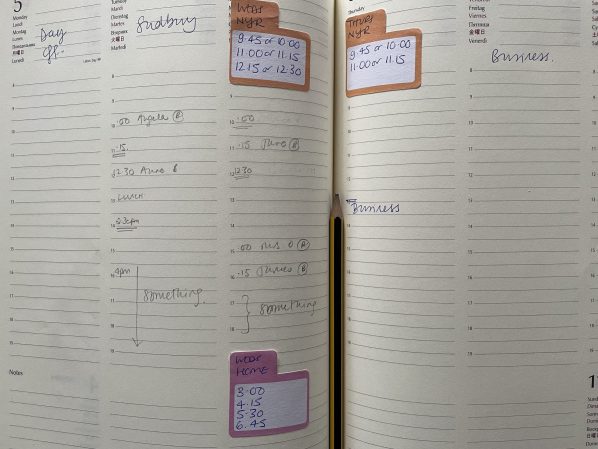 5
Monday
Lundi
Montag
Lunes
月曜日
Lunedì
Day
off.
8
9
10
11
12
13
14
15
16
17
18
19
Notes
Tuesday
Mardi
Dienstag
Martes
火曜日
Martedì
Sudbury
10.00 Angela (R)
11.15
12.30 Anne
Lunch
2.30pm
4pm
something.
WEDS
NYR
9.45 or 10.00
11.00 or 11.15
12.15 or 12.30
.00
.15 June (R)
12.30
.00 Mrs O (R)
.15 James (R)
something
WEDS
HOME
3.00
4.15
5.30
6.45
Thursday
THURS
NYR
9.45 or 10.00
11.00 or 11.15
Business
Freitag
Viernes
金曜日
Venerdì
Business.
11